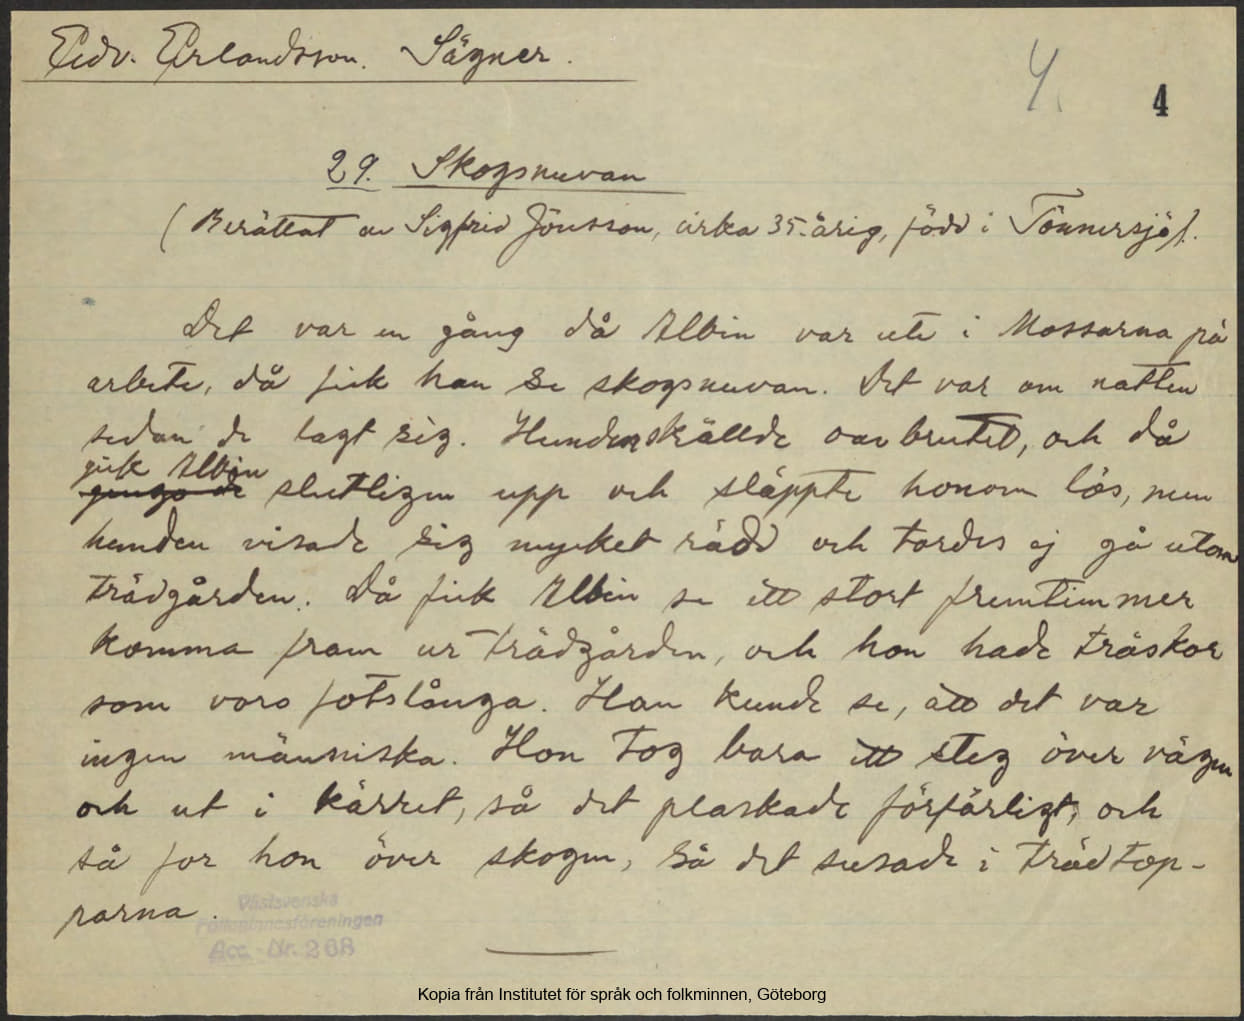 Edv. Erlandsson. Sägner.
4.
4
29. Skogsnuvan
(Berättat av Sigfrid Jönsson, cirka 35-årig, född i Tönnersjö).
Det var en gång då Albin var ute i Mossarna på
arbete, då fick han se skogsnuvan. Det var om natten
sedan de lagt sig. Hunden skällde oavbrutet, och då
gick Albin
gingo de slutligen upp och släppte honom lös, men
hunden visade sig mycket rädd och tordes ej gå utom
trädgården. Då fick Albin se ett stort fremtimmer
komma fram ur trädgården, och hon hade träskor
som voro fotslånga. Han kunde se, att det var
ingen människa. Hon tog bara ett steg över vägen
och ut i kärret, så det plaskade förfärligt, och
så for hon över skogen, så det susade i trädtop-
parna.
Västsvenska
Folkminnesföreningen
Acc.-Nr. 268
Kopia från Institutet för språk och folkminnen, Göteborg